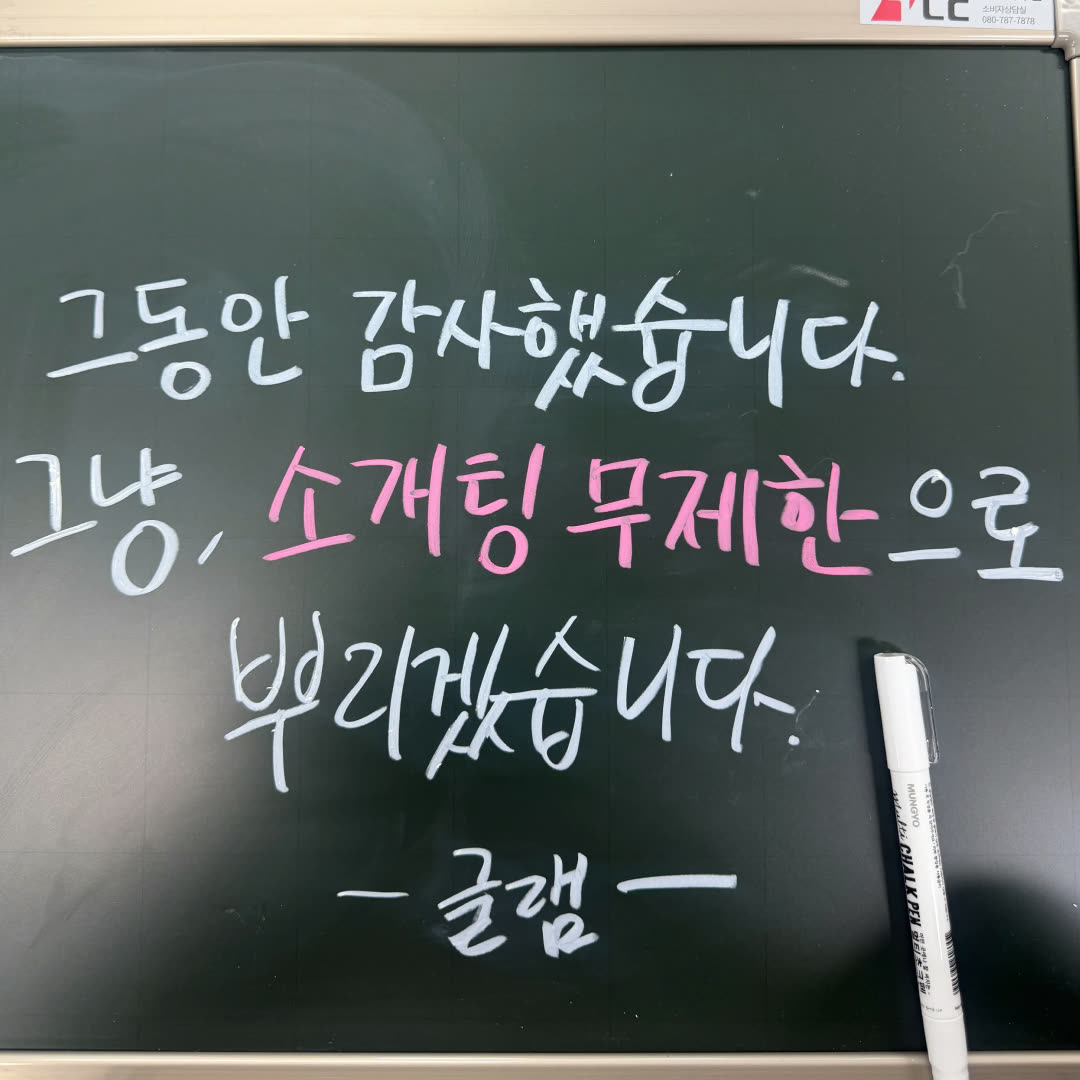 소비자상담실
080-787-7878
그동안 감사했습니다.
그냥, 소개팅 무제한으로
뿌리겠습니다.
- 글램 -
MUNGYO
CHALK PEN 멀티초크펜